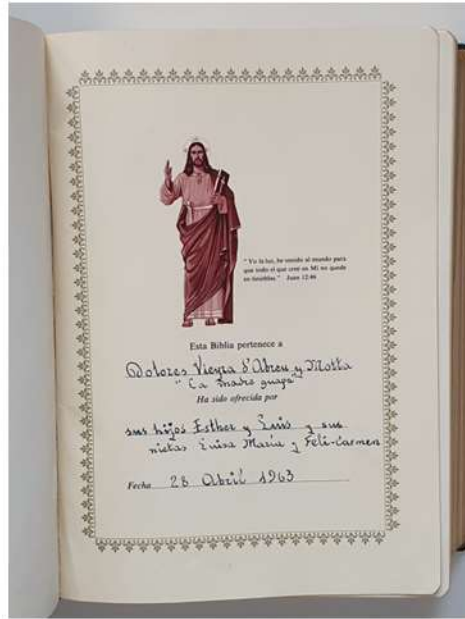 "Yo la luz, he venido al mundo para
que todo el que cree en Mí no quede
en tinieblas." Juan 12:46
Esta Biblia pertenece a
Dolores Vieyra d'Abreu y Motta
"La madre guapa"
Ha sido ofrecida por
sus hijos Esther y Luis y sus
nietas Luisa María y Feli-Carmen
Fecha 28 Abril 1963